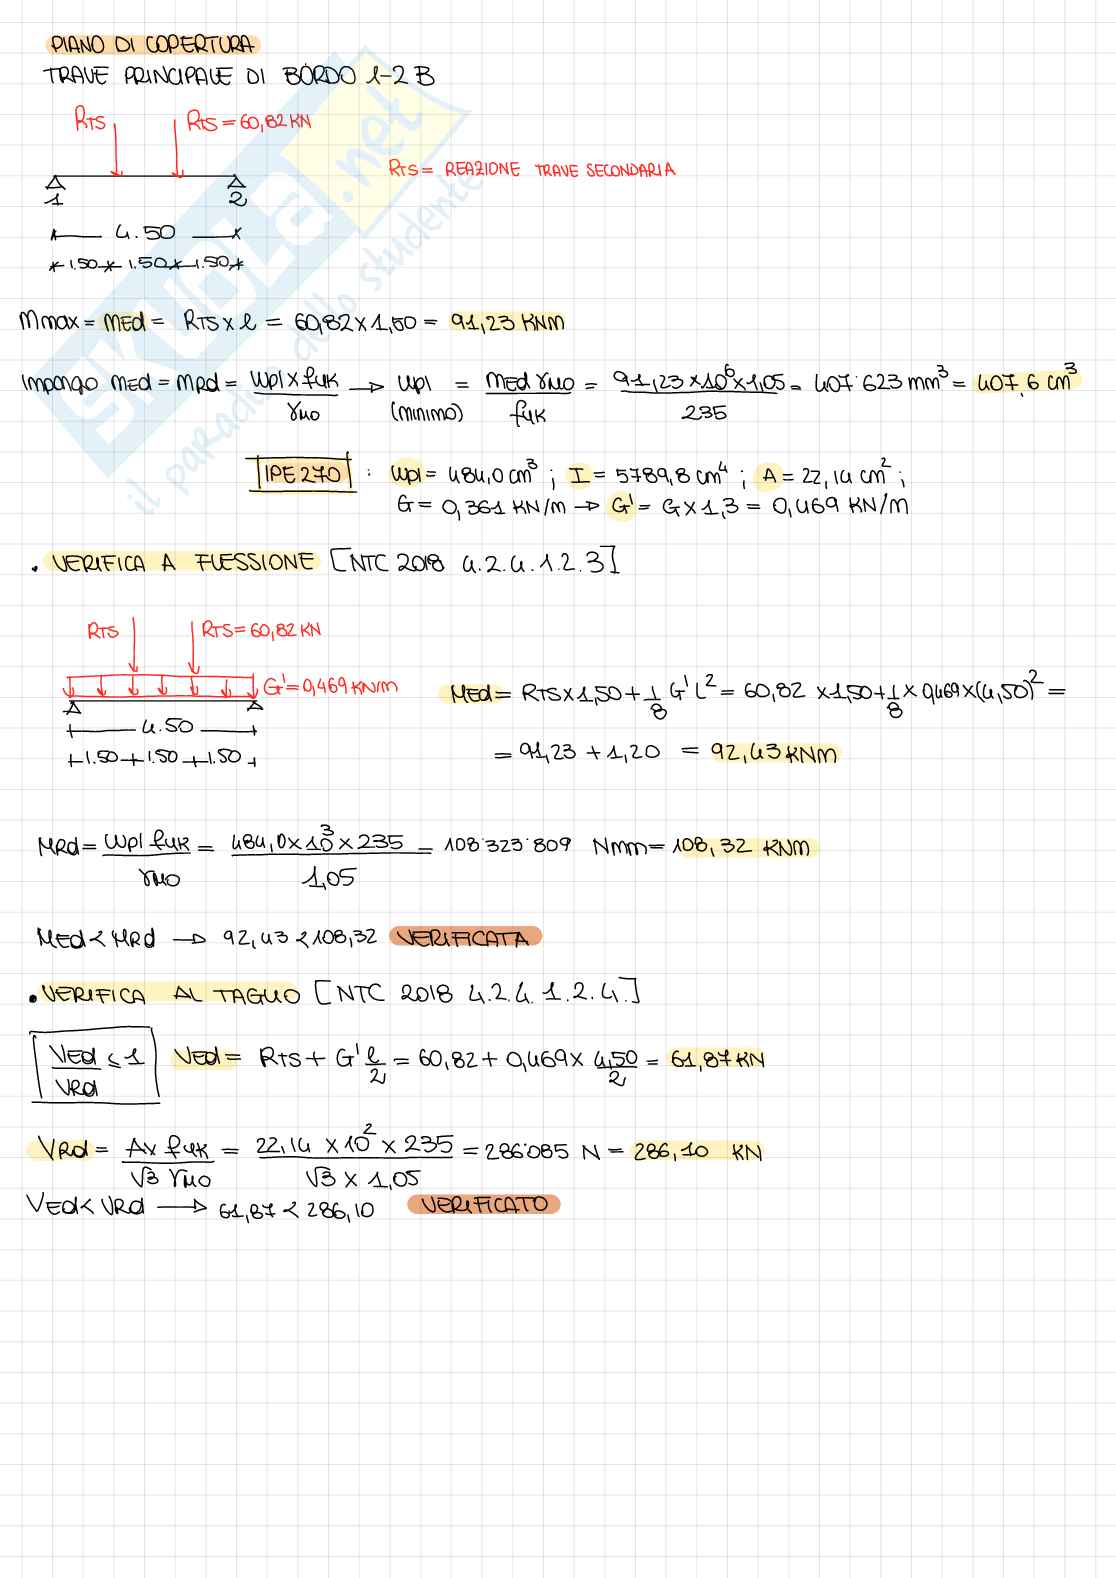 PIANO DI COPERTURA
TRAVE PRINCIPALE DI BORDO 1-2 B
RTS RTS = 60,82 KN
RTS = REAZIONE TRAVE SECONDARIA
1 2
4.50
1.50 1.50 1.50
Mmax = MEd = RTS x l = 60,82 x 1,50 = 91,23 KNm
Impongo MEd = MRd = Wpl x fyk / γM0 → Wpl (minimo) = MEd γM0 / fyk = 91,23 x 10^6 x 1,05 / 235 = 407˙623 mm³ = 407,6 cm³
IPE 270 : Wpl = 484,0 cm³ ; I = 5789,8 cm⁴ ; A = 22,14 cm² ;
G = 0,361 KN/m → G' = G x 1,3 = 0,469 KN/m
. VERIFICA A FLESSIONE [NTC 2018 4.2.4.1.2.3]
RTS RTS = 60,82 KN
G' = 0,469 KN/m
4.50
1.50 1.50 1.50
MEd = RTS x 1,50 + 1/8 G' L² = 60,82 x 1,50 + 1/8 x 0,469 x (4,50)² =
= 91,23 + 1,20 = 92,43 KNm
MRd = Wpl fyk / γM0 = 484,0 x 10³ x 235 / 1,05 = 108˙323˙809 Nmm = 108,32 KNm
MEd < MRd → 92,43 < 108,32 VERIFICATA
. VERIFICA AL TAGLIO [NTC 2018 4.2.4.1.2.4.]
VEd / VRd ≤ 1 VEd = RTS + G' l/2 = 60,82 + 0,469 x 4,50/2 = 61,87 KN
VRd = A x fyk / √3 γM0 = 22,14 x 10² x 235 / √3 x 1,05 = 286˙085 N = 286,10 KN
VEd < VRd → 61,87 < 286,10 VERIFICATO
SKUOLA.net
il paradiso dello studente